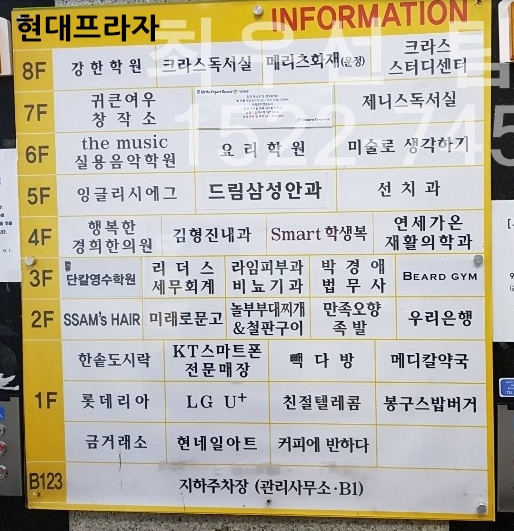 현대프라자
INFORMATION
8F 강한학원 크라스독서실 메리츠화재(운정) 크라스
스터디센터
7F 귀큰여우
창작소 제니스독서실
6F the music
실용음악학원 요리학원 미술로 생각하기
5F 잉글리시에그 드림삼성안과 선치과
4F 행복한
경희한의원 김형진내과 Smart학생복 연세가온
재활의학과
3F 단칼영수학원 리더스
세무회계 라임피부과
비뇨기과 박경애
법무사 BEARD GYM
2F SSAM's HAIR 미래로문고 놀부부대찌개
&철판구이 만족오향
족발 우리은행
1F 한솥도시락 KT스마트폰
전문매장 빽다방 메디칼약국
롯데리아 LG U+ 친절텔레콤 봉구스밥버거
금거래소 현네일아트 커피에 반하다
B123 지하주차장 (관리사무소·B1)
최우선 팀
1522 745